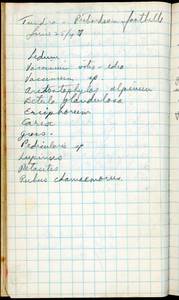 Tundra - Richardson foothills
June 25/47
Ledum
Vaccinium vitis-idea
Vaccinium sp.
Arctostaphylos alpinum
Betula glandulosa
Eriophorum
Carex
grass.
Pedicularis sp
Lupinus
Petasites
Rubus chamaemorus